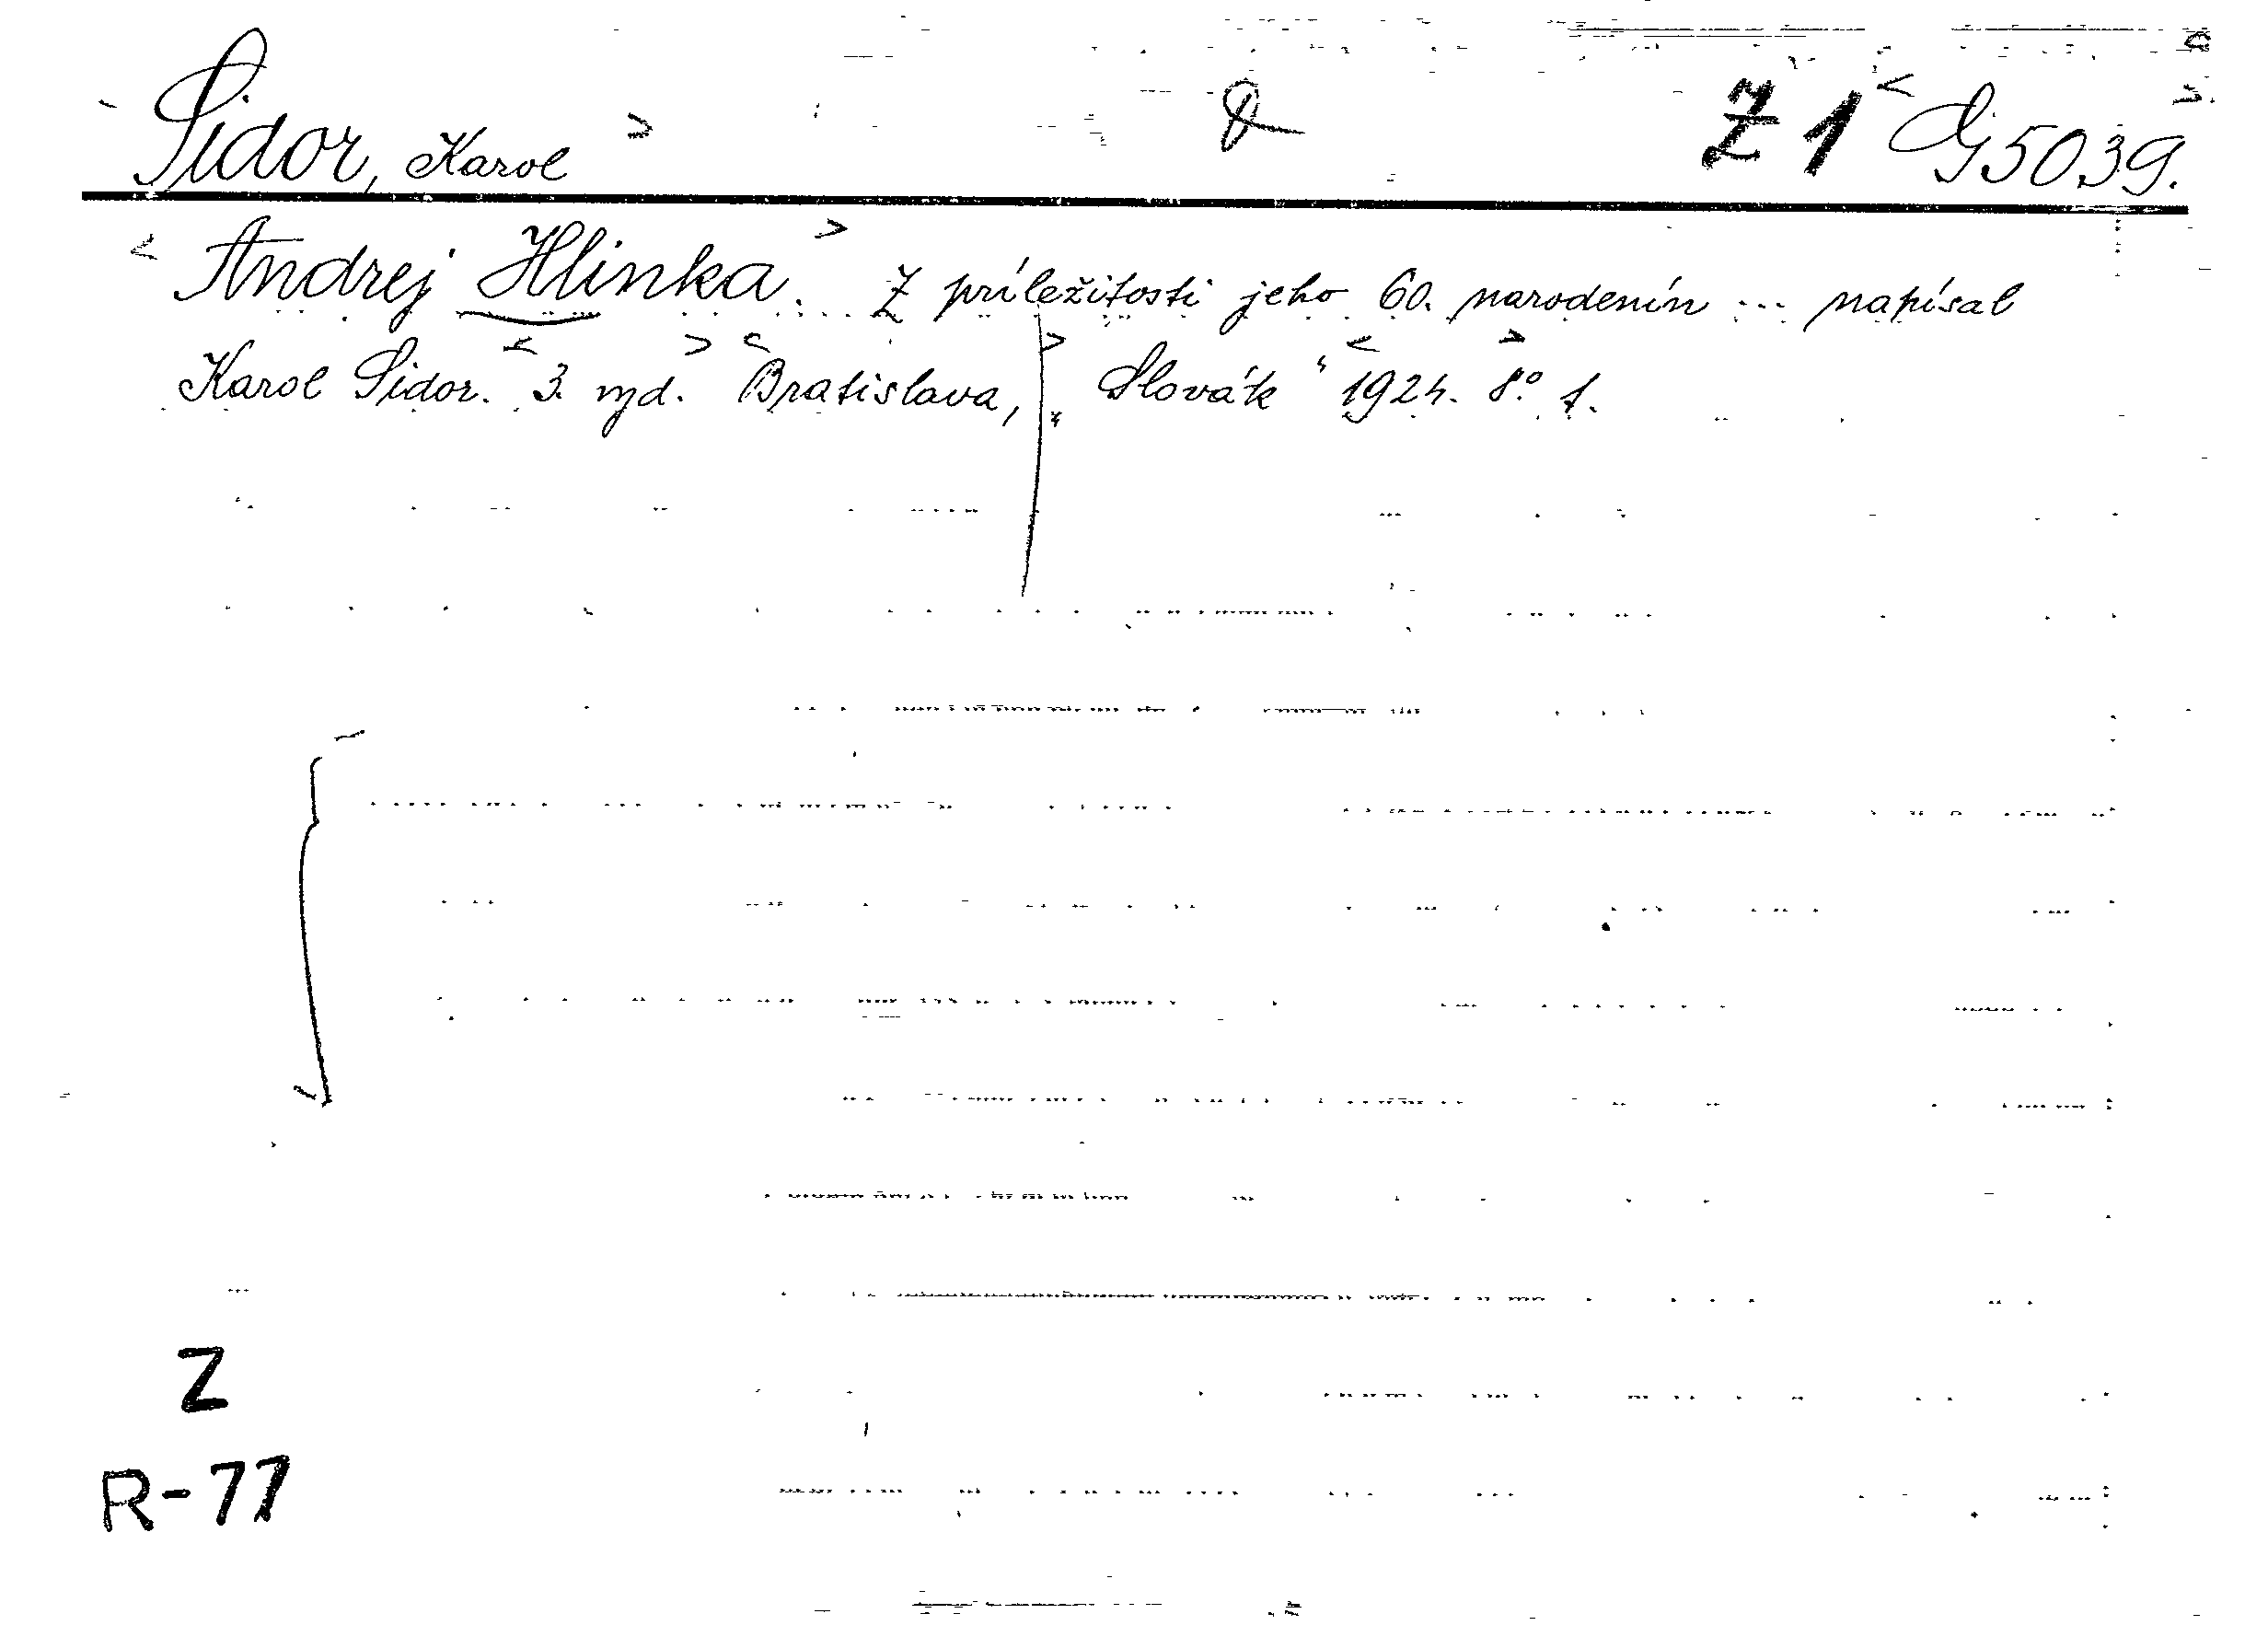 Sidor, Karol Z 1 G 5039.
Andrej Hlinka. Z príležitosti jeho 60. narodenín ... napísal
Karol Sidor. 3. vyd. Bratislava, „Slovák“ 1924. 8° 1.
Z
R-77